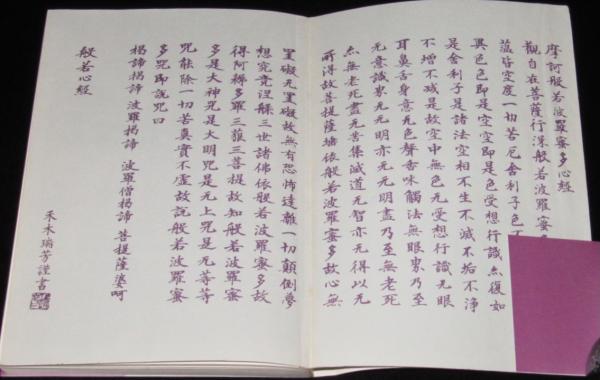 摩訶般若波羅蜜多心經
觀自在菩薩行深般若波羅蜜
蘊皆空度一切苦厄舍利子色
異色色即是空空即是色受想行識亦復如
是舍利子是諸法空相不生不滅不垢不淨
不增不減是故空中無色无受想行識无眼
耳鼻舌身意无色聲香味觸法無眼界乃至
无意識界无无明亦无无明盡乃至無老死
亦無老死盡无苦集滅道无智亦无得以无
所得故菩提薩埵依般若波羅蜜多故心無
罣礙无罣礙故無有恐怖遠離一切顛倒夢
想究竟涅槃三世諸佛依般若波羅蜜多故
得阿耨多羅三藐三菩提故知般若波羅蜜
多是大神咒是大明咒是无上咒是无等等
咒能除一切苦真實不虛故説般若波羅蜜
多咒即説咒曰
揭諦揭諦 波羅揭諦 波羅僧揭諦 菩提薩婆訶
般若心經
禾木瑞芳謹書